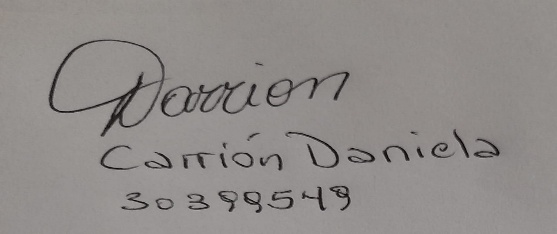 Darrion
Carrión Daniela
30399549